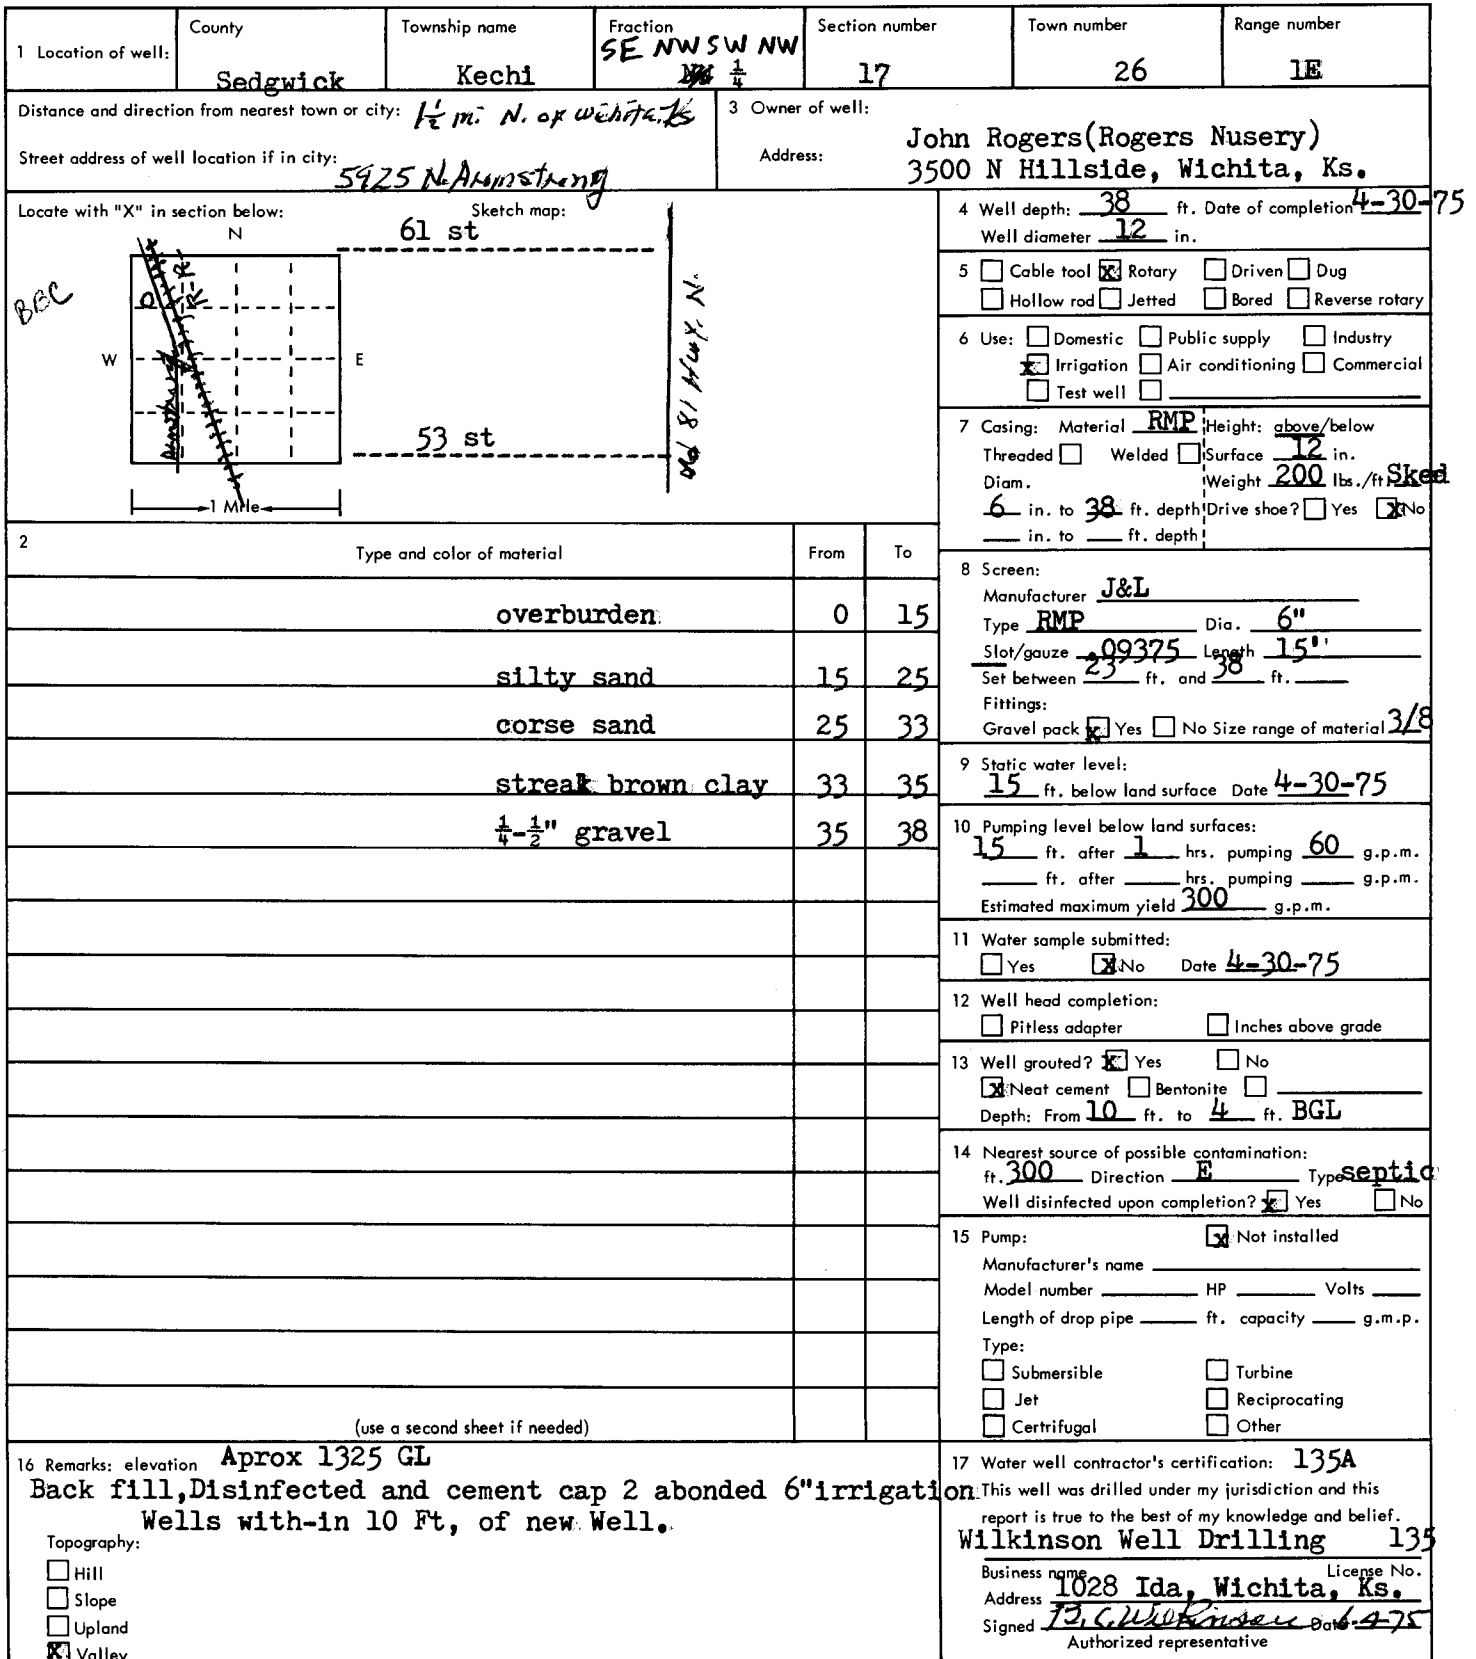 1 Location of well:
County
Sedgwick
Township name
Kechi
Fraction
SE NW SW NW
1/4
Section number
17
Town number
26
Range number
1E
Distance and direction from nearest town or city: 1½ mi N. of Wichita, Ks
Street address of well location if in city:
5925 N. Armstrong
3 Owner of well:
John Rogers(Rogers Nusery)
Address:
3500 N Hillside, Wichita, Ks.
Locate with "X" in section below:
Sketch map:
N
61 st
BBC
W
E
R-R
Armstrong
Old 81 Hwy. N.
53 st
1 Mile
2
Type and color of material
From
To
overburden 0 15
silty sand 15 25
corse sand 25 33
streak brown clay 33 35
¼-½" gravel 35 38
(use a second sheet if needed)
4 Well depth: 38 ft. Date of completion 4-30-75
Well diameter 12 in.
5 Cable tool X Rotary Driven Dug
Hollow rod Jetted Bored Reverse rotary
6 Use: Domestic Public supply Industry
X Irrigation Air conditioning Commercial
Test well
7 Casing: Material RMP Height: above/below
Threaded Welded Surface 12 in.
Diam. Weight 200 lbs./ft. Sked
6 in. to 38 ft. depth Drive shoe? Yes X No
in. to ft. depth
8 Screen:
Manufacturer J&L
Type RMP Dia. 6"
Slot/gauze .09375 Length 15"
Set between 23 ft. and 38 ft.
Fittings:
Gravel pack X Yes No Size range of material 3/8
9 Static water level:
15 ft. below land surface Date 4-30-75
10 Pumping level below land surfaces:
15 ft. after 1 hrs. pumping 60 g.p.m.
ft. after hrs. pumping g.p.m.
Estimated maximum yield 300 g.p.m.
11 Water sample submitted:
Yes X No Date 4-30-75
12 Well head completion:
Pitless adapter Inches above grade
13 Well grouted? X Yes No
X Neat cement Bentonite
Depth: From 10 ft. to 4 ft. BGL
14 Nearest source of possible contamination:
ft. 300 Direction E Type septic
Well disinfected upon completion? X Yes No
15 Pump: X Not installed
Manufacturer's name
Model number HP Volts
Length of drop pipe ft. capacity g.m.p.
Type:
Submersible Turbine
Jet Reciprocating
Certrifugal Other
16 Remarks: elevation Aprox 1325 GL
Back fill,Disinfected and cement cap 2 abonded 6"irrigation
Wells with-in 10 Ft, of new Well.
Topography:
Hill
Slope
Upland
X Valley
17 Water well contractor's certification: 135A
This well was drilled under my jurisdiction and this
report is true to the best of my knowledge and belief.
Wilkinson Well Drilling 135
Business name License No.
Address 1028 Ida, Wichita, Ks.
Signed B.C. Wilkinson Date 6-4-75
Authorized representative